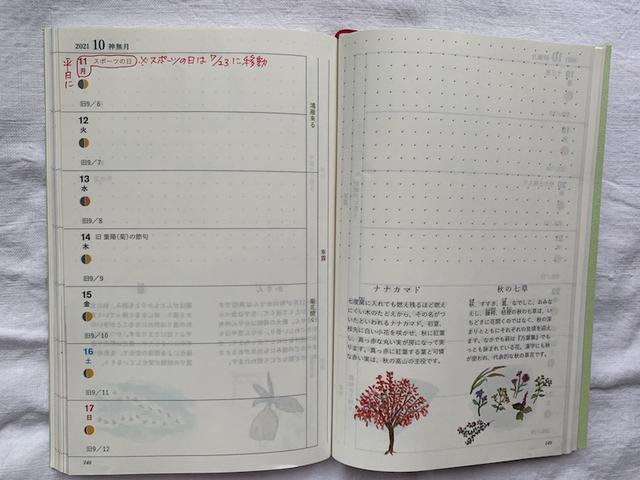 2021 10 神無月
平日に
11 月 スポーツの日 ※スポーツの日は 7/23 に移動
旧9/6
鴻雁来る
12
火
旧9/7
13
水
旧9/8
寒露
14 旧 重陽(菊)の節句
木
旧9/9
菊花開く
15
金
16
土
旧9/11
17
日
旧9/12
148
ナナカマド
七度窯に入れても燃え残るほど燃え
にくい木のたとえから、その名がつ
いたといわれるナナカマド。初夏、
枝先に白い小花を咲かせ、秋に紅葉
し、真っ赤な丸い実が房になって実
ります。真っ赤に紅葉する葉と可憐
な赤い実は、秋の高山の主役です。
秋の七草
萩、すすき、葛、なでしこ、おみな
えし、藤袴、桔梗の秋の七草は、い
ちどきに花開くのではなく、秋の深
まりとともにそれぞれの見頃を迎え
ます。なかでも萩は『万葉集』でも
っとも詠まれている花。漢字にも秋
が使われ、代表的な秋の草花です。
149